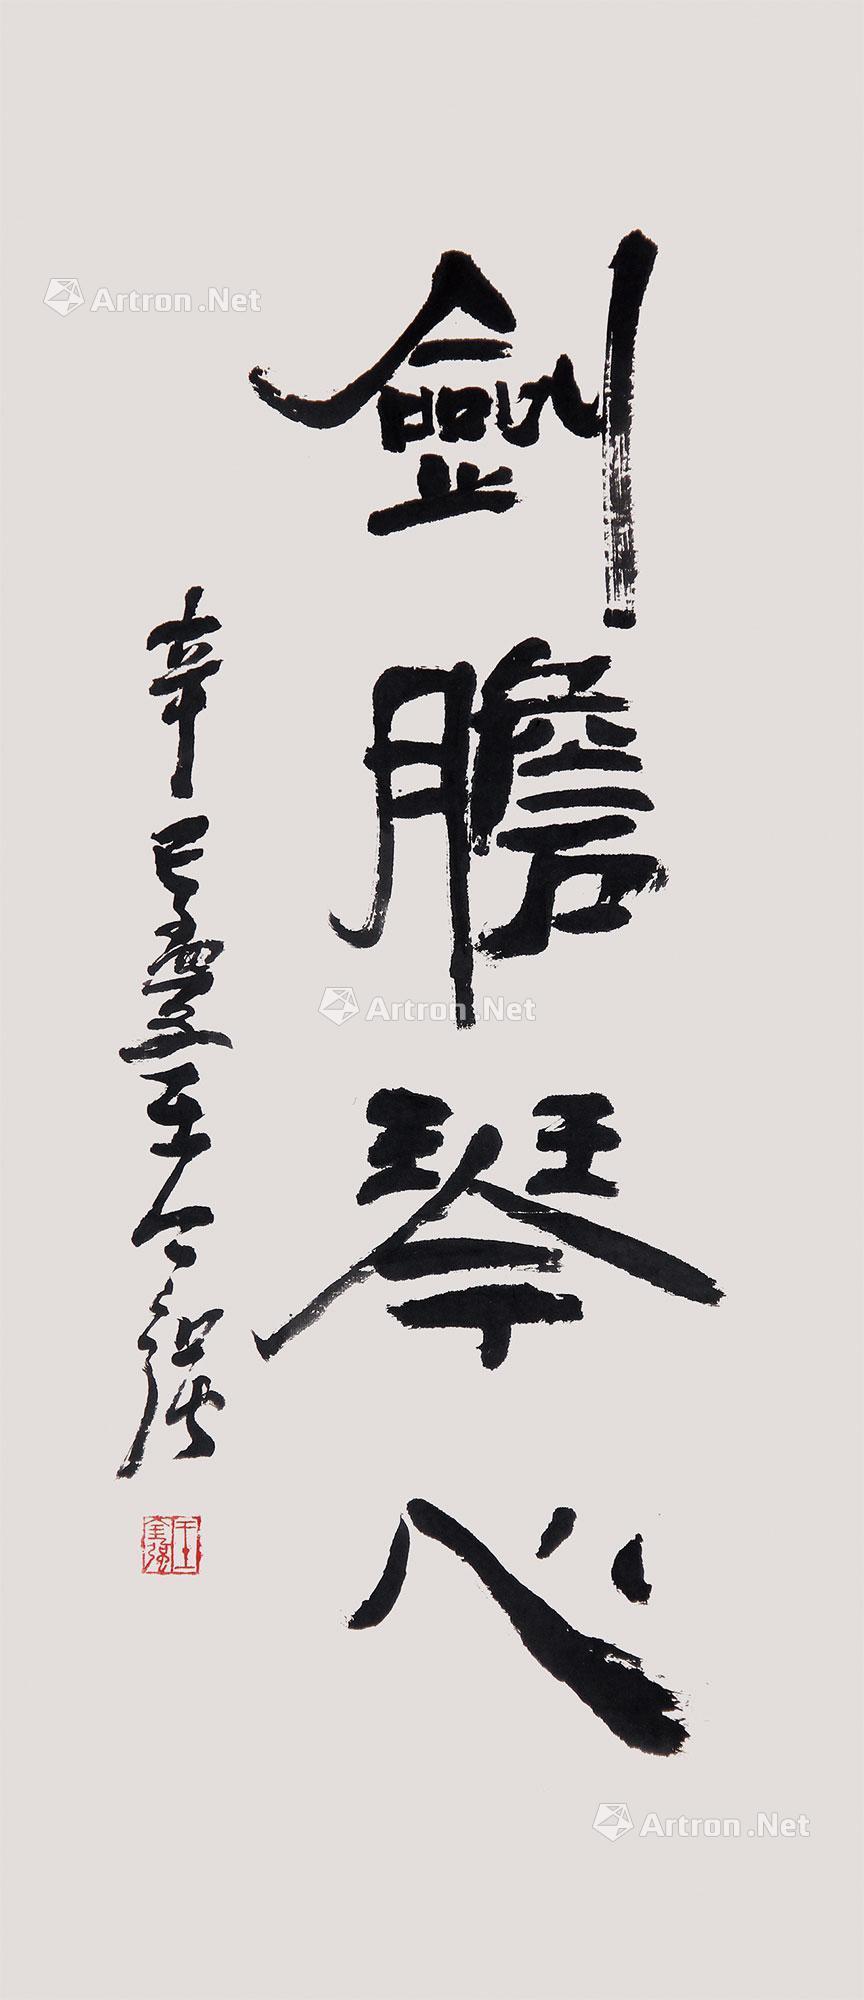 劍膽琴心
辛巳夏王金強
王
金強
Artron.Net
Artron.Net
Artron.Net